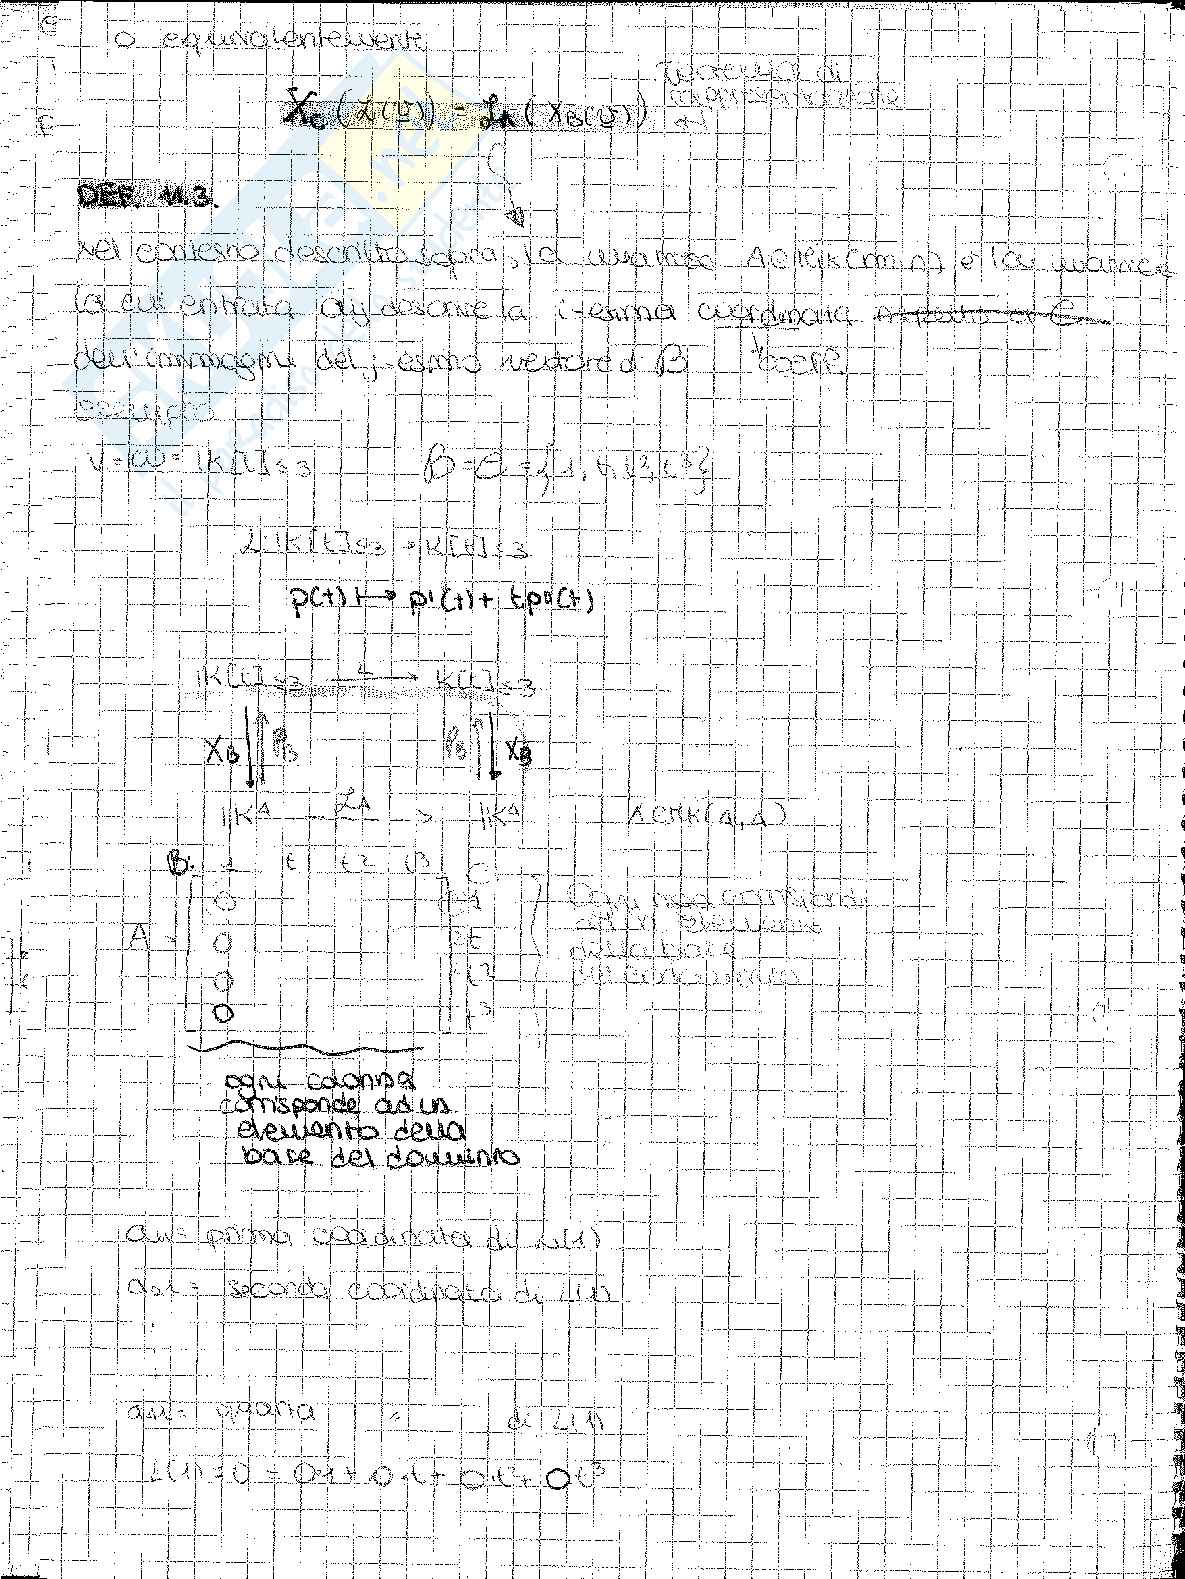 o equivalentemente
X_C (L(v)) = L_A (X_B(v)) teorema di rappresentazione
DEF. 11.3.
Nel contesto descritto sopra, la matrice A ∈ M_K(m,n) è la matrice
la cui entrata aij descrive la i-esima coordinata rispetto a C
dell'immagine del j-esimo vettore di B
esempio
V = W = K[t]≤3 B = C = {1, t, t², t³}
L: K[t]≤3 → K[t]≤3
p(t) ↦ p'(t) + tp''(t)
K[t]≤3 L → K[t]≤3
X_B P_B P_B X_B
K⁴ L_A → K⁴ A ∈ M_K(4,4)
B: 1 t t² t³ C
0 1 Ogni riga corrisponde
ad un elemento
A = 0 t della base
0 t² del codominio
0 t³
ogni colonna
corrisponde ad un
elemento della
base del dominio
a11 = prima coordinata di L(1)
a21 = seconda coordinata di L(1)
a41 = quarta " di L(1)
L(1) = 0 = 0·1 + 0·t + 0·t² + 0t³